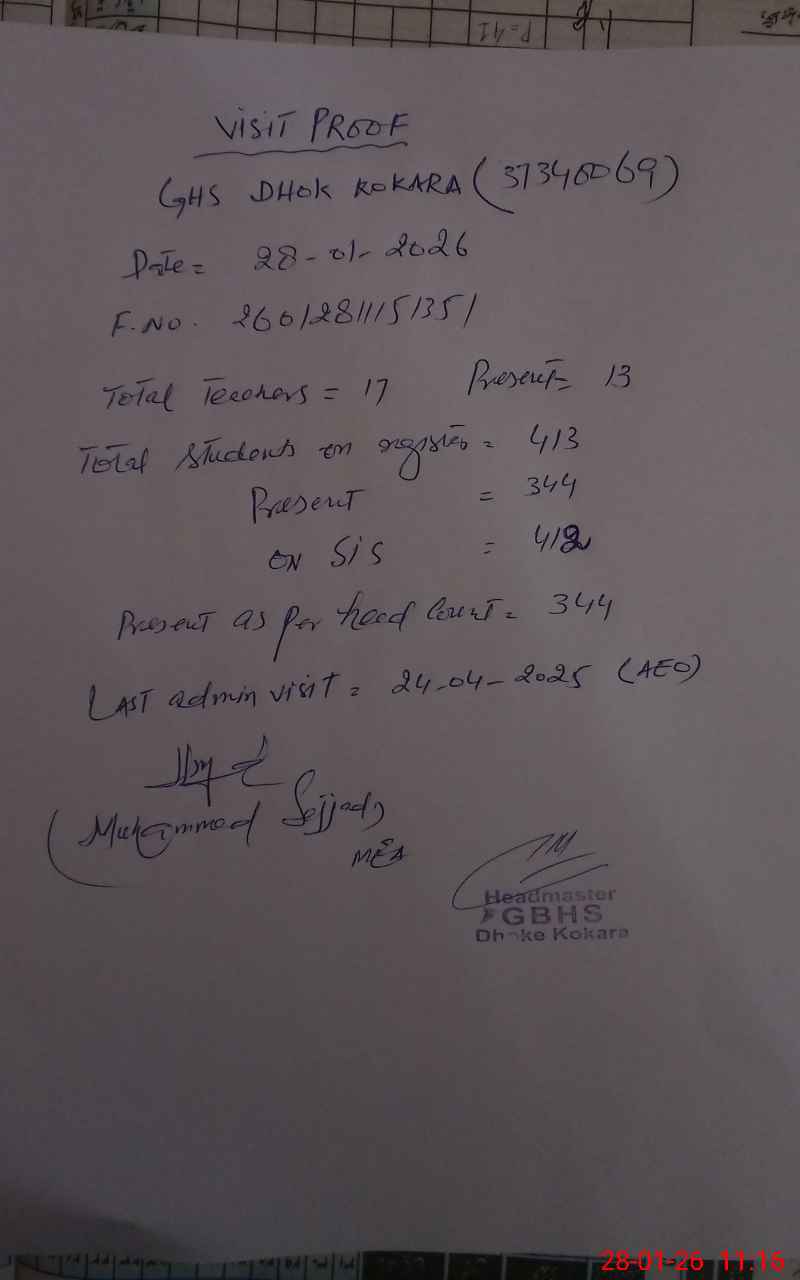 P=41
VISIT PROOF
GHS DHOK KOKARA (37340069)
Date = 28-01-2026
F.No. 26012811151351
Total Teachers = 17 Present = 13
Total Students on register = 413
Present = 344
ON SIS = 412
Present as per head count = 344
LAST admin visit = 24-04-2025 (AEO)
(Muhammad Sajjad)
MEA
Headmaster
GBHS
Dhoke Kokara
28-01-26 11:16